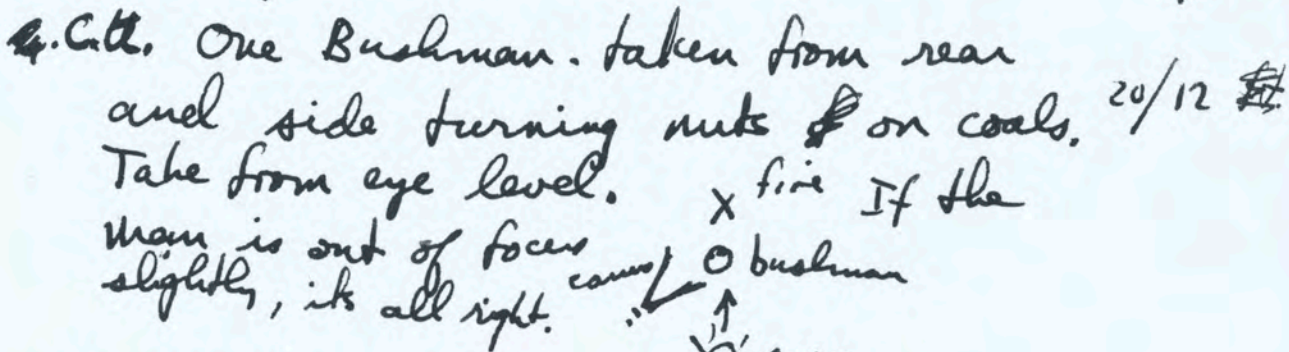 One Bushman. taken from rear
and side turning nuts on coals. 20/12
Take from eye level. X fire If the
man is out of focus
slightly, its all right. O bushman